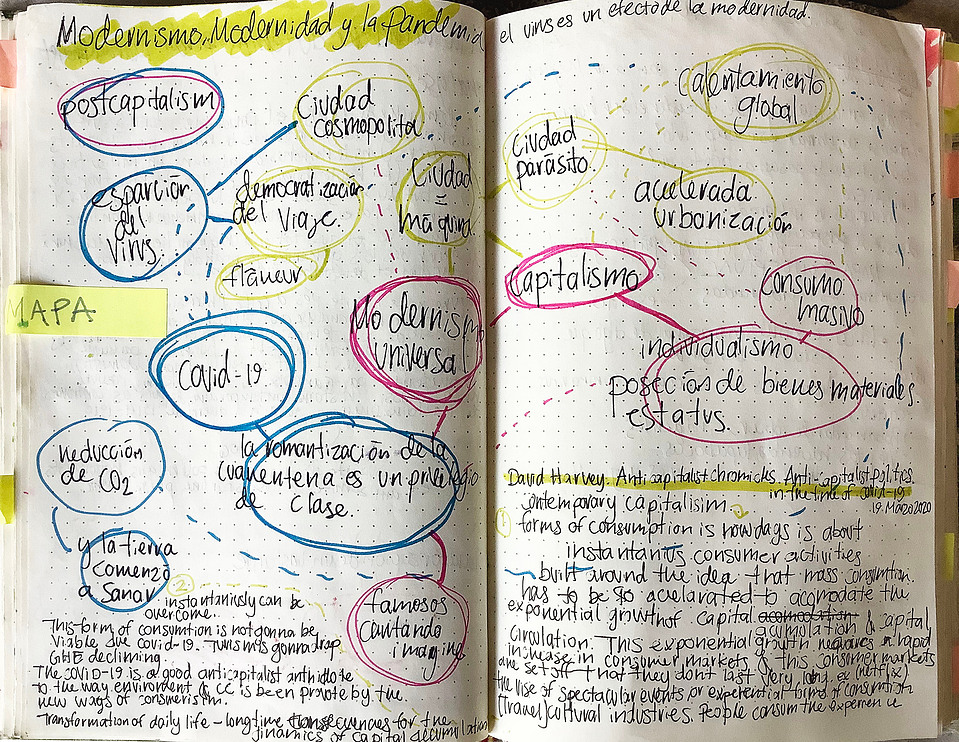 Modernismo, Modernidad y la Pandemia
postcapitalism
ciudad
cosmopolita
esparción
del
virus.
democratización
del viaje.
Ciudad
=
máquina
flâneur
MAPA
Modernismo
universal
Covid-19
la romantización de la
cuarentena es un privilegio
de clase.
reducción
de CO2
y la tierra
comenzó
a sanar
famosos
cantando
imagine
2
instantaniusly can be
overcome.
This form of consumtion is not gonna be
viable due covid-19. Turism is gonna drop
GHE decliming.
The COVID-19 is a good anticapitalist anthidote
to the way enviroment & CC is been provote by the
new ways of consumerism.
Transformation of daily life - longtime for the
dinamics of capital accumulation
el virus es un efecto de la modernidad.
Calentamiento
global
Ciudad
parásito.
acelerada
urbanización
Capitalismo
Consumo
masivo
individualismo
poseción de bienes materiales.
estatus.
David Harvey. Anticapitalist chronicles. Anti-capitalist politics
in the time of covid-19
19. Marzo 2020
contemporary capitalisim
1
forms of consumption is nowdays is about
instantanius consumer activities
built around the idea that mass consumtion.
has to be so acelarated to acomodate the
exponential growth of capital
acumulation & capital
circulation. This exponential growth requieres a rapid
increase in consumer markets & this consumer markets
are set off that they dont last very long. ex (netflix)
the rise of spectacular events or experiential forms of consumtion
(travel) cultural industries. People consum the experience